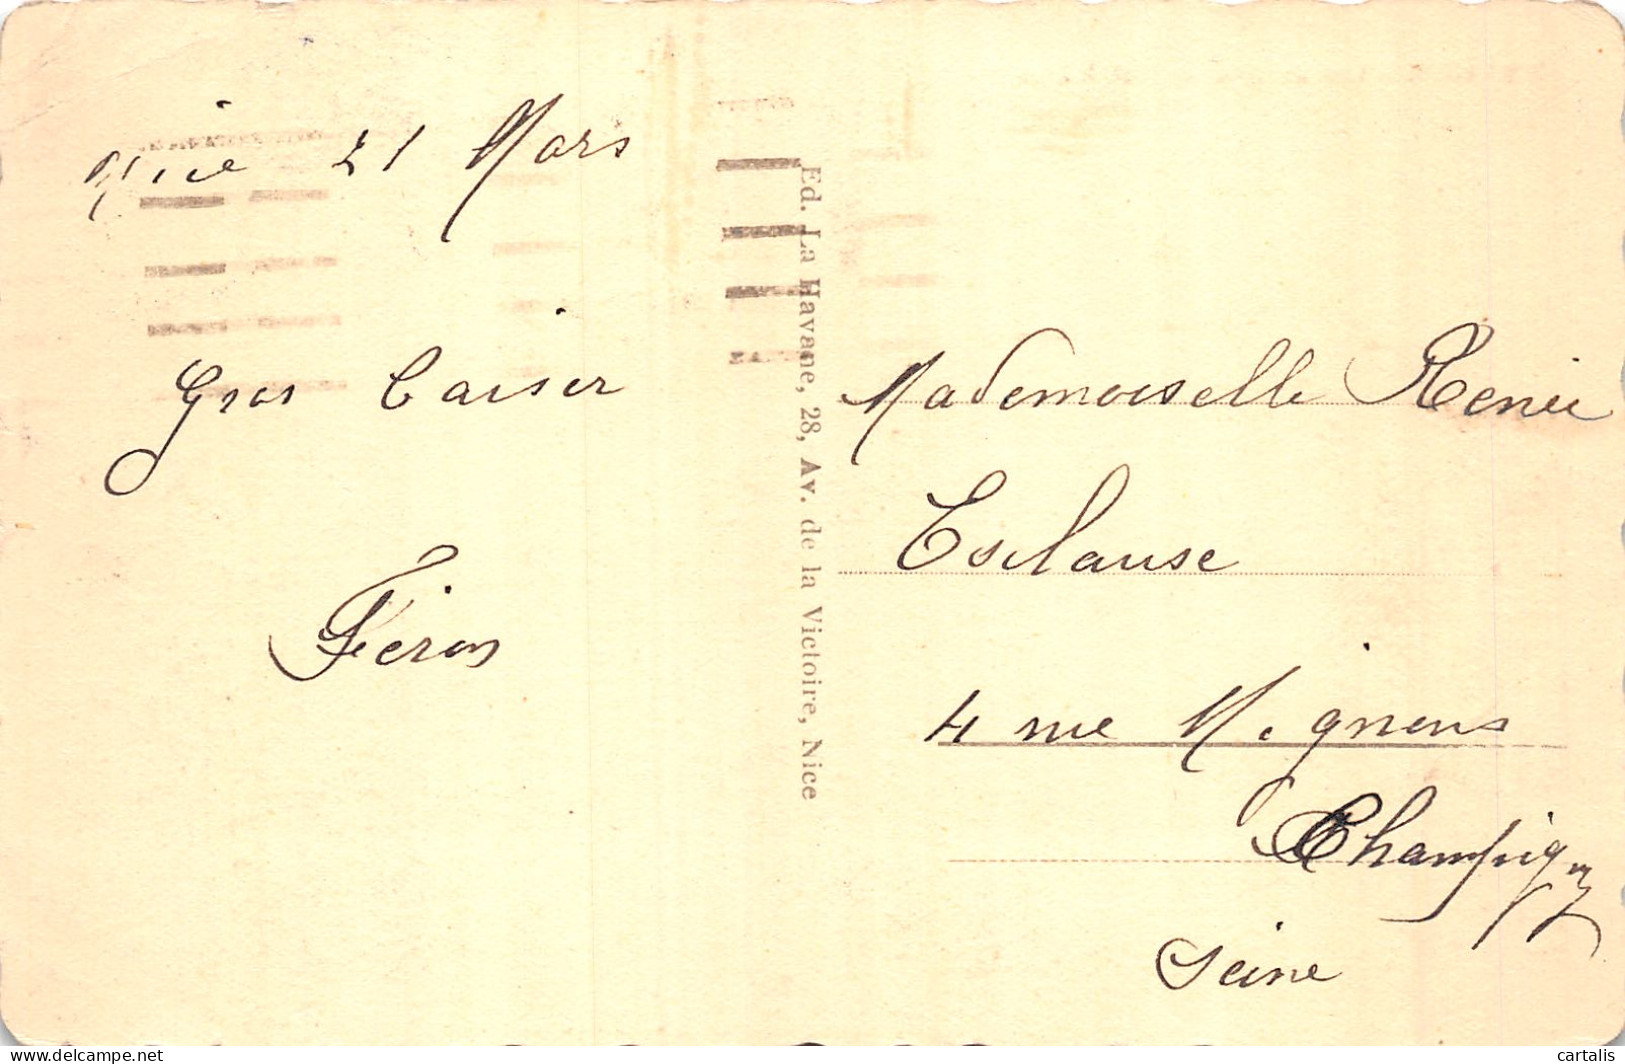 Nice 21 Mars
Gros Baiser
Féron
Ed. La Havane, 28, Av. de la Victoire, Nice
Mademoiselle Renée
Esclause
4 rue Mignons
Champigny
Seine
www.delcampe.net
cartalis